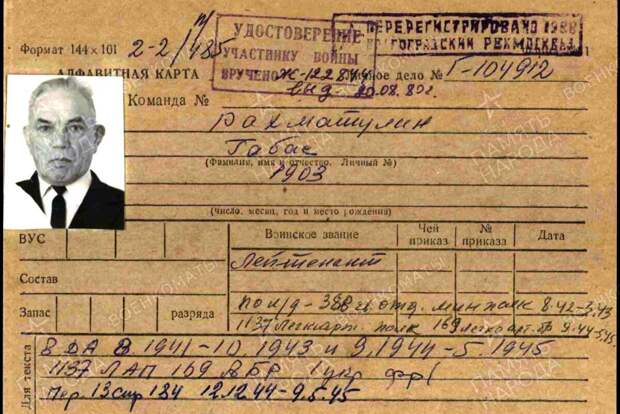 Формат 144 х 101 2-2/485
УДОСТОВЕРЕНИЕ
УЧАСТНИКУ ВОЙНЫ
ВРУЧЕНО Ж-122844
выд. 20.08.80г.
ПЕРЕРЕГИСТРИРОВАНО 1988
АЛФАВИТНАЯ КАРТА Личное дело № Г-104912
Команда №
Рахматулин
Габас
(Фамилия, имя и отчество. Личный №)
1903
(Число, месяц, год и место рождения)
ВУС Воинское звание Чей приказ № приказа Дата
Состав Лейтенант
Запас разряда
388 отд. минполк 8.42-3.43
1137 Легкоарт. полк 169 легкоарт. бр 9.44-5.45
Для текста
8 ДА В 1941-10.1943 и 9.1944-5.1945
1137 ЛАП 169 ЛАБР 1 укр фр
Пер. 13 стр 184 12.12.44-9.5.45
ПАМЯТЬ НАРОДА
ВОЕНКОМАТЫ